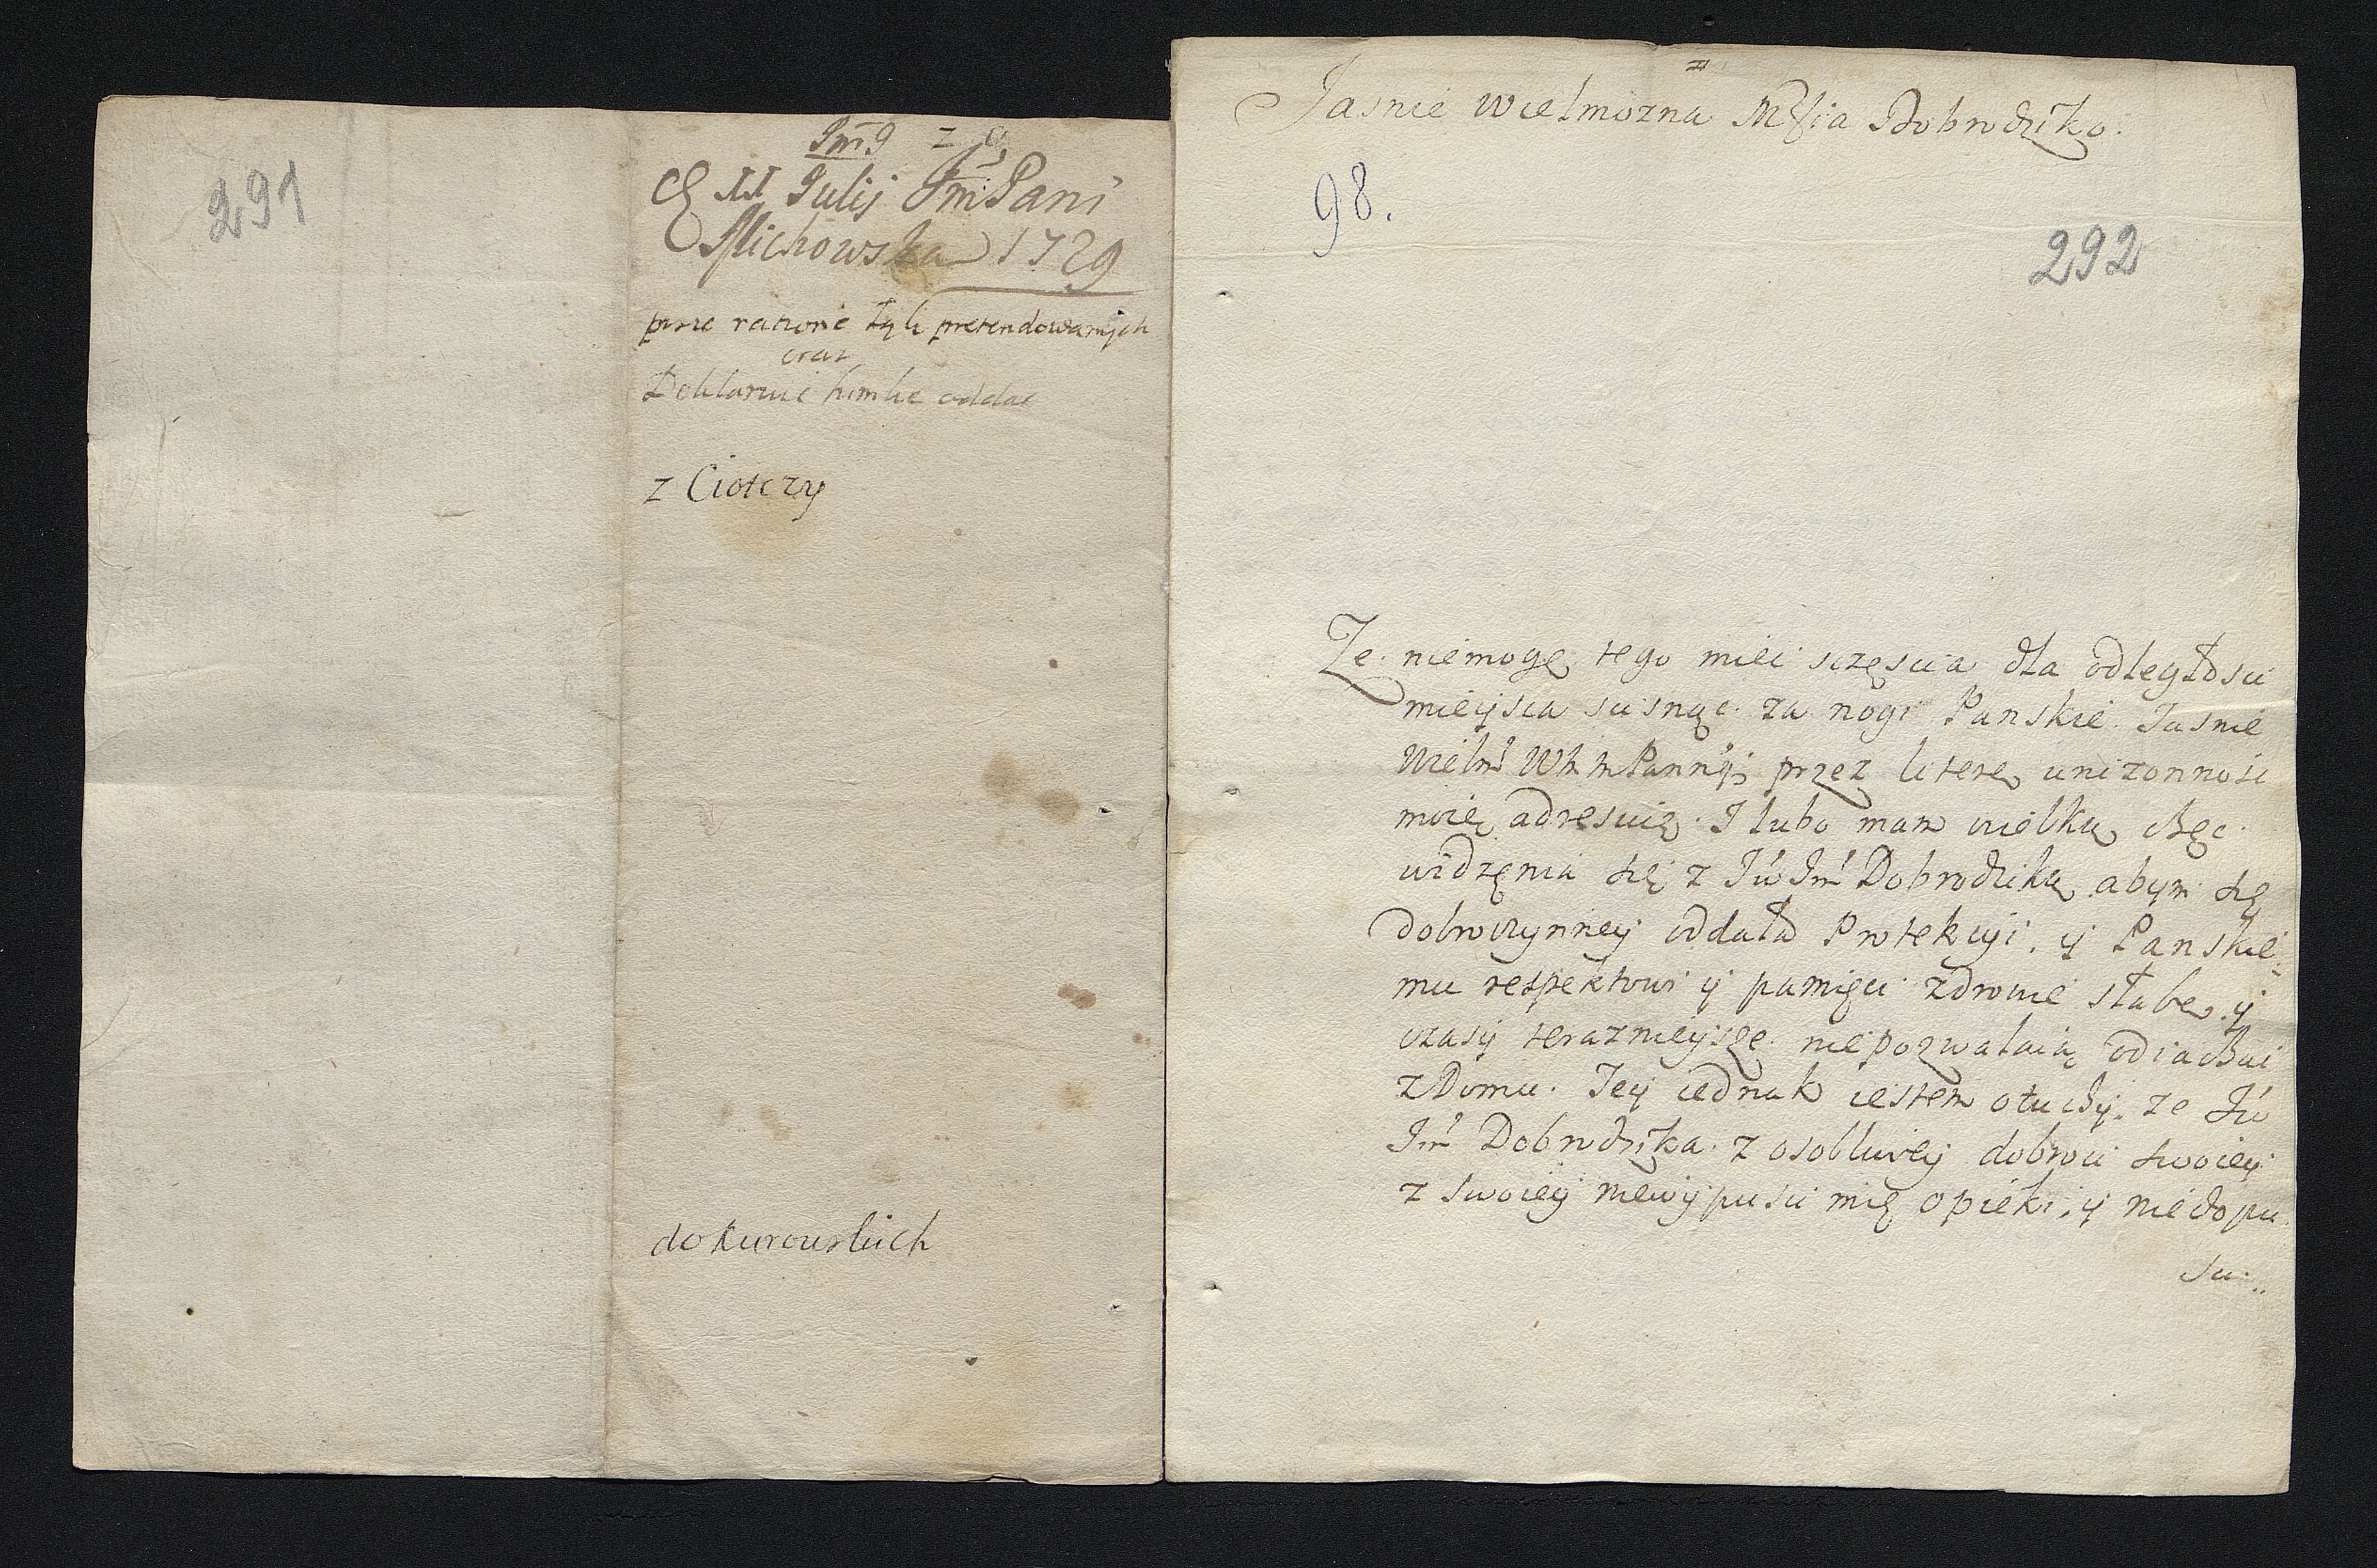 291
11 Julij Jm Pani
Michowska 1729
ratione tych pretendowanych
oraz
oddac
z Ciotczy
do Kurowskich
Jasnie Wielmozna Mscia Dobrodziko.
98.
292
Ze niemogę tego miec sczęscia dla odległosci
mieysca scisnąc za nogi Panskie Jasnie
Wielm przez literę unizonnosc
moię adresuię. I lubo mam wielką chęc
widzęnia się z Jw Jm Dobrodziką abym się
dobroczynney oddała Protekcyi, y Panskie
mu respektowi y pamięci zdrowie słabe y
czasy terazneysze niepozwalaią odiachac
z Domu. Tey iednak iestem otuchy. ze Jw
Jm Dobrodzika z osobliwey dobroci swoiey
z swoiey niewypusci mię opieki, y niedopu
sci..